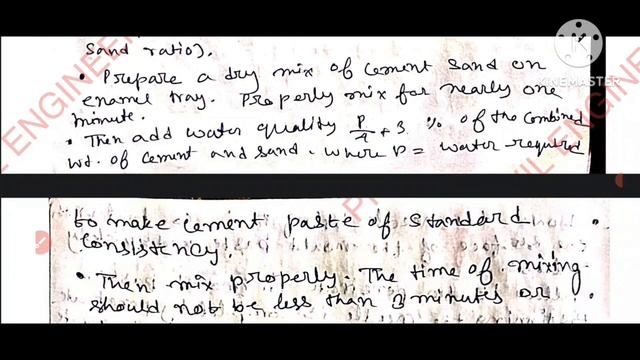 Sand ratio).
• Prepare a dry mix of cement sand on
enamel tray. Properly mix for nearly one
minute.
• Then add water quality P/4 + 3 % of the combined
wt. of cement and sand. where P = water required
to make cement paste of standard
consistency.
• Then mix properly. The time of mixing
should not be less than 3 minutes or
Made with
KINEMASTER
CIVIL ENGINEER